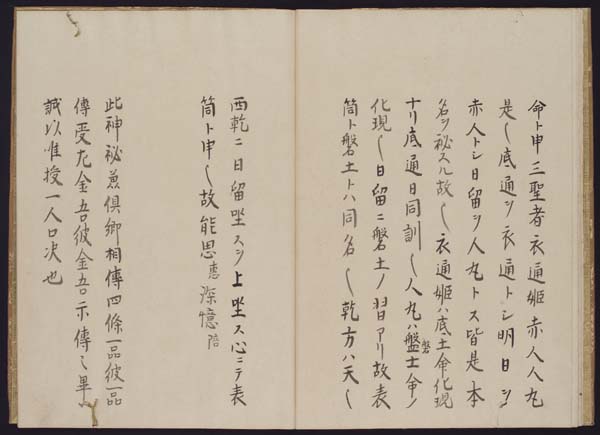 命ト申三聖者衣通姫赤人人丸
是〱底通ヲ衣通トシ明日ヲ
赤人トシ日留ヲ人丸トス皆是本
名ヲ秘スル故〱衣通姫ハ底土命化現
ナリ底通日同訓〱人丸ハ盤土命ノ
化現〱日留ニ磐土ノ習アリ故表
筒ト磐土トハ同名〱乾方ハ天〱
西乾ニ日留坐スヲ上坐ス心ニテ表
筒ト申〱故能思恵深憶陪
此神祕義倶卿相傳四條一品彼一品
傳受左金吾彼金吾示傳之畢
誠以唯授一人口决也